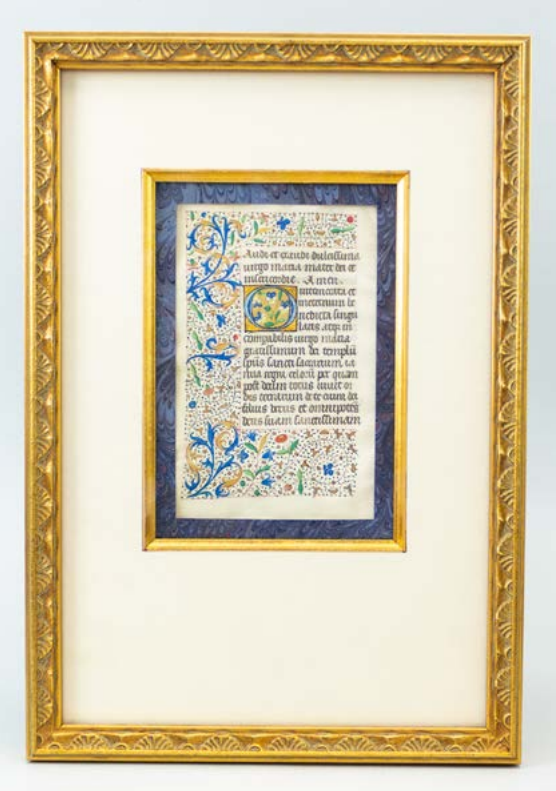 Aude et gaude dulcissima
virgo maria mater dei et
misericordie. Amen.
intemerata et
in eternum be
nedicta singu
laris atqz in
comparabilis virgo maria
gratissimum dei templū
spūs sancti sacrarium, ia
nua regni celorū per quam
post deum totus vivit or
bis terrarum de te enim dei
filius verus et omnipotēs
deus suam sanctissimam